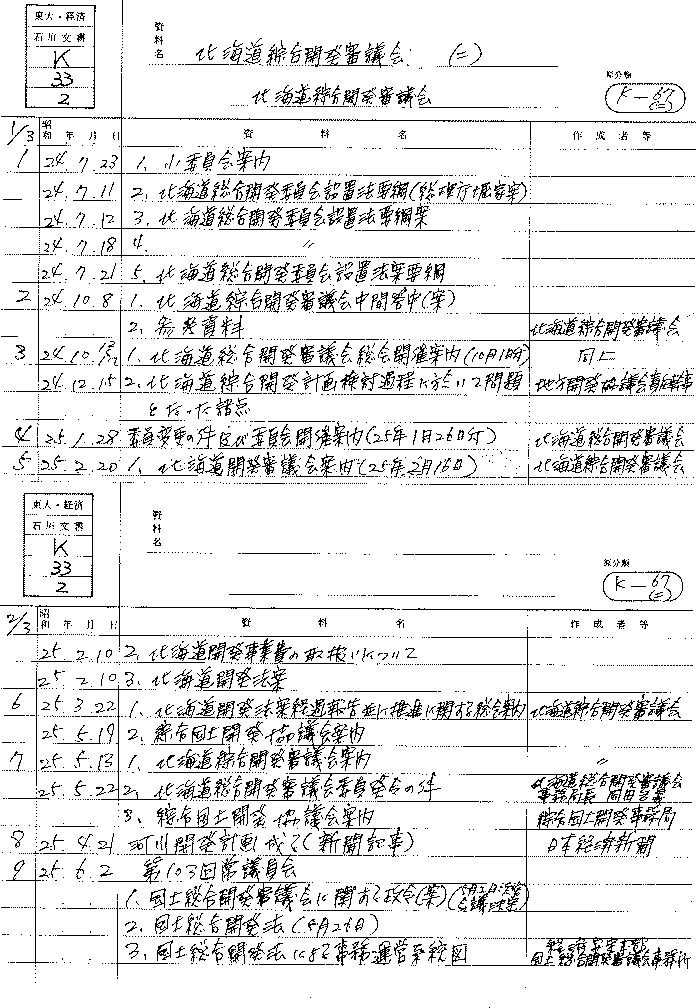 東大・経済
石川文書
K
33
2
資料名 北海道綜合開発審議会 (二)
北海道綜合開発審議会
原分類
K-67 (二)
1/3 昭和 年 月 日 資 料 名 作成者等
1 24.7.23 1. 小委員会案内
24.7.11 2. 北海道総合開発委員会設置法要綱(総理庁
24.7.12 3. 北海道総合開発委員会設置法要綱案
24.7.18 4. 〃
24.7.21 5. 北海道総合開発委員会設置法案要綱
2 24.10.8 1. 北海道綜合開発審議会中間答申(案)
2. 参考資料 北海道綜合開発審議会
3 24.10. 1. 北海道総合開発審議会総会開催案内(10月 同上
24.12.15 2. 北海道綜合開発計画検討過程に於いて問題
となった諸点
4 25.1.28 委員変更の件及び委員会開催案内(25年1月26日付) 北海道総合開発審議会
5 25.2.20 1. 北海道開発審議会案内(25年2月16日) 北海道綜合開発審議会
東大・経済
石川文書
K
33
2
資料名
原分類
K-67 (二)
2/3 昭和 年 月 日 資 料 名 作成者等
25.2.10 2. 北海道開発事業費の取扱いについて
25.2.10 3. 北海道開発法案
6 25.3.22 1. 北海道開発法案経過報告並に推進に関する総会案内 北海道綜合開発審議会
25.5.19 2. 綜合国土開発協議会案内
7 25.5.13 1. 北海道綜合開発審議会案内 〃
25.5.22 2. 北海道総合開発審議会委員発令の件 北海道総合開発審議会
事務局長 岡田
3. 綜合国土開発協議会案内 綜合国土開発事務局
8 25.4.21 河川開発計画成る(新聞記事) 日本経済新聞
9 25.6.2 第103回常議員会
1. 国土総合開発審議会に関する政令(案)
2. 国土総合開発法(5月26日)
3. 国土総合開発法による事務運営系統図
国土総合開発審議会事務所